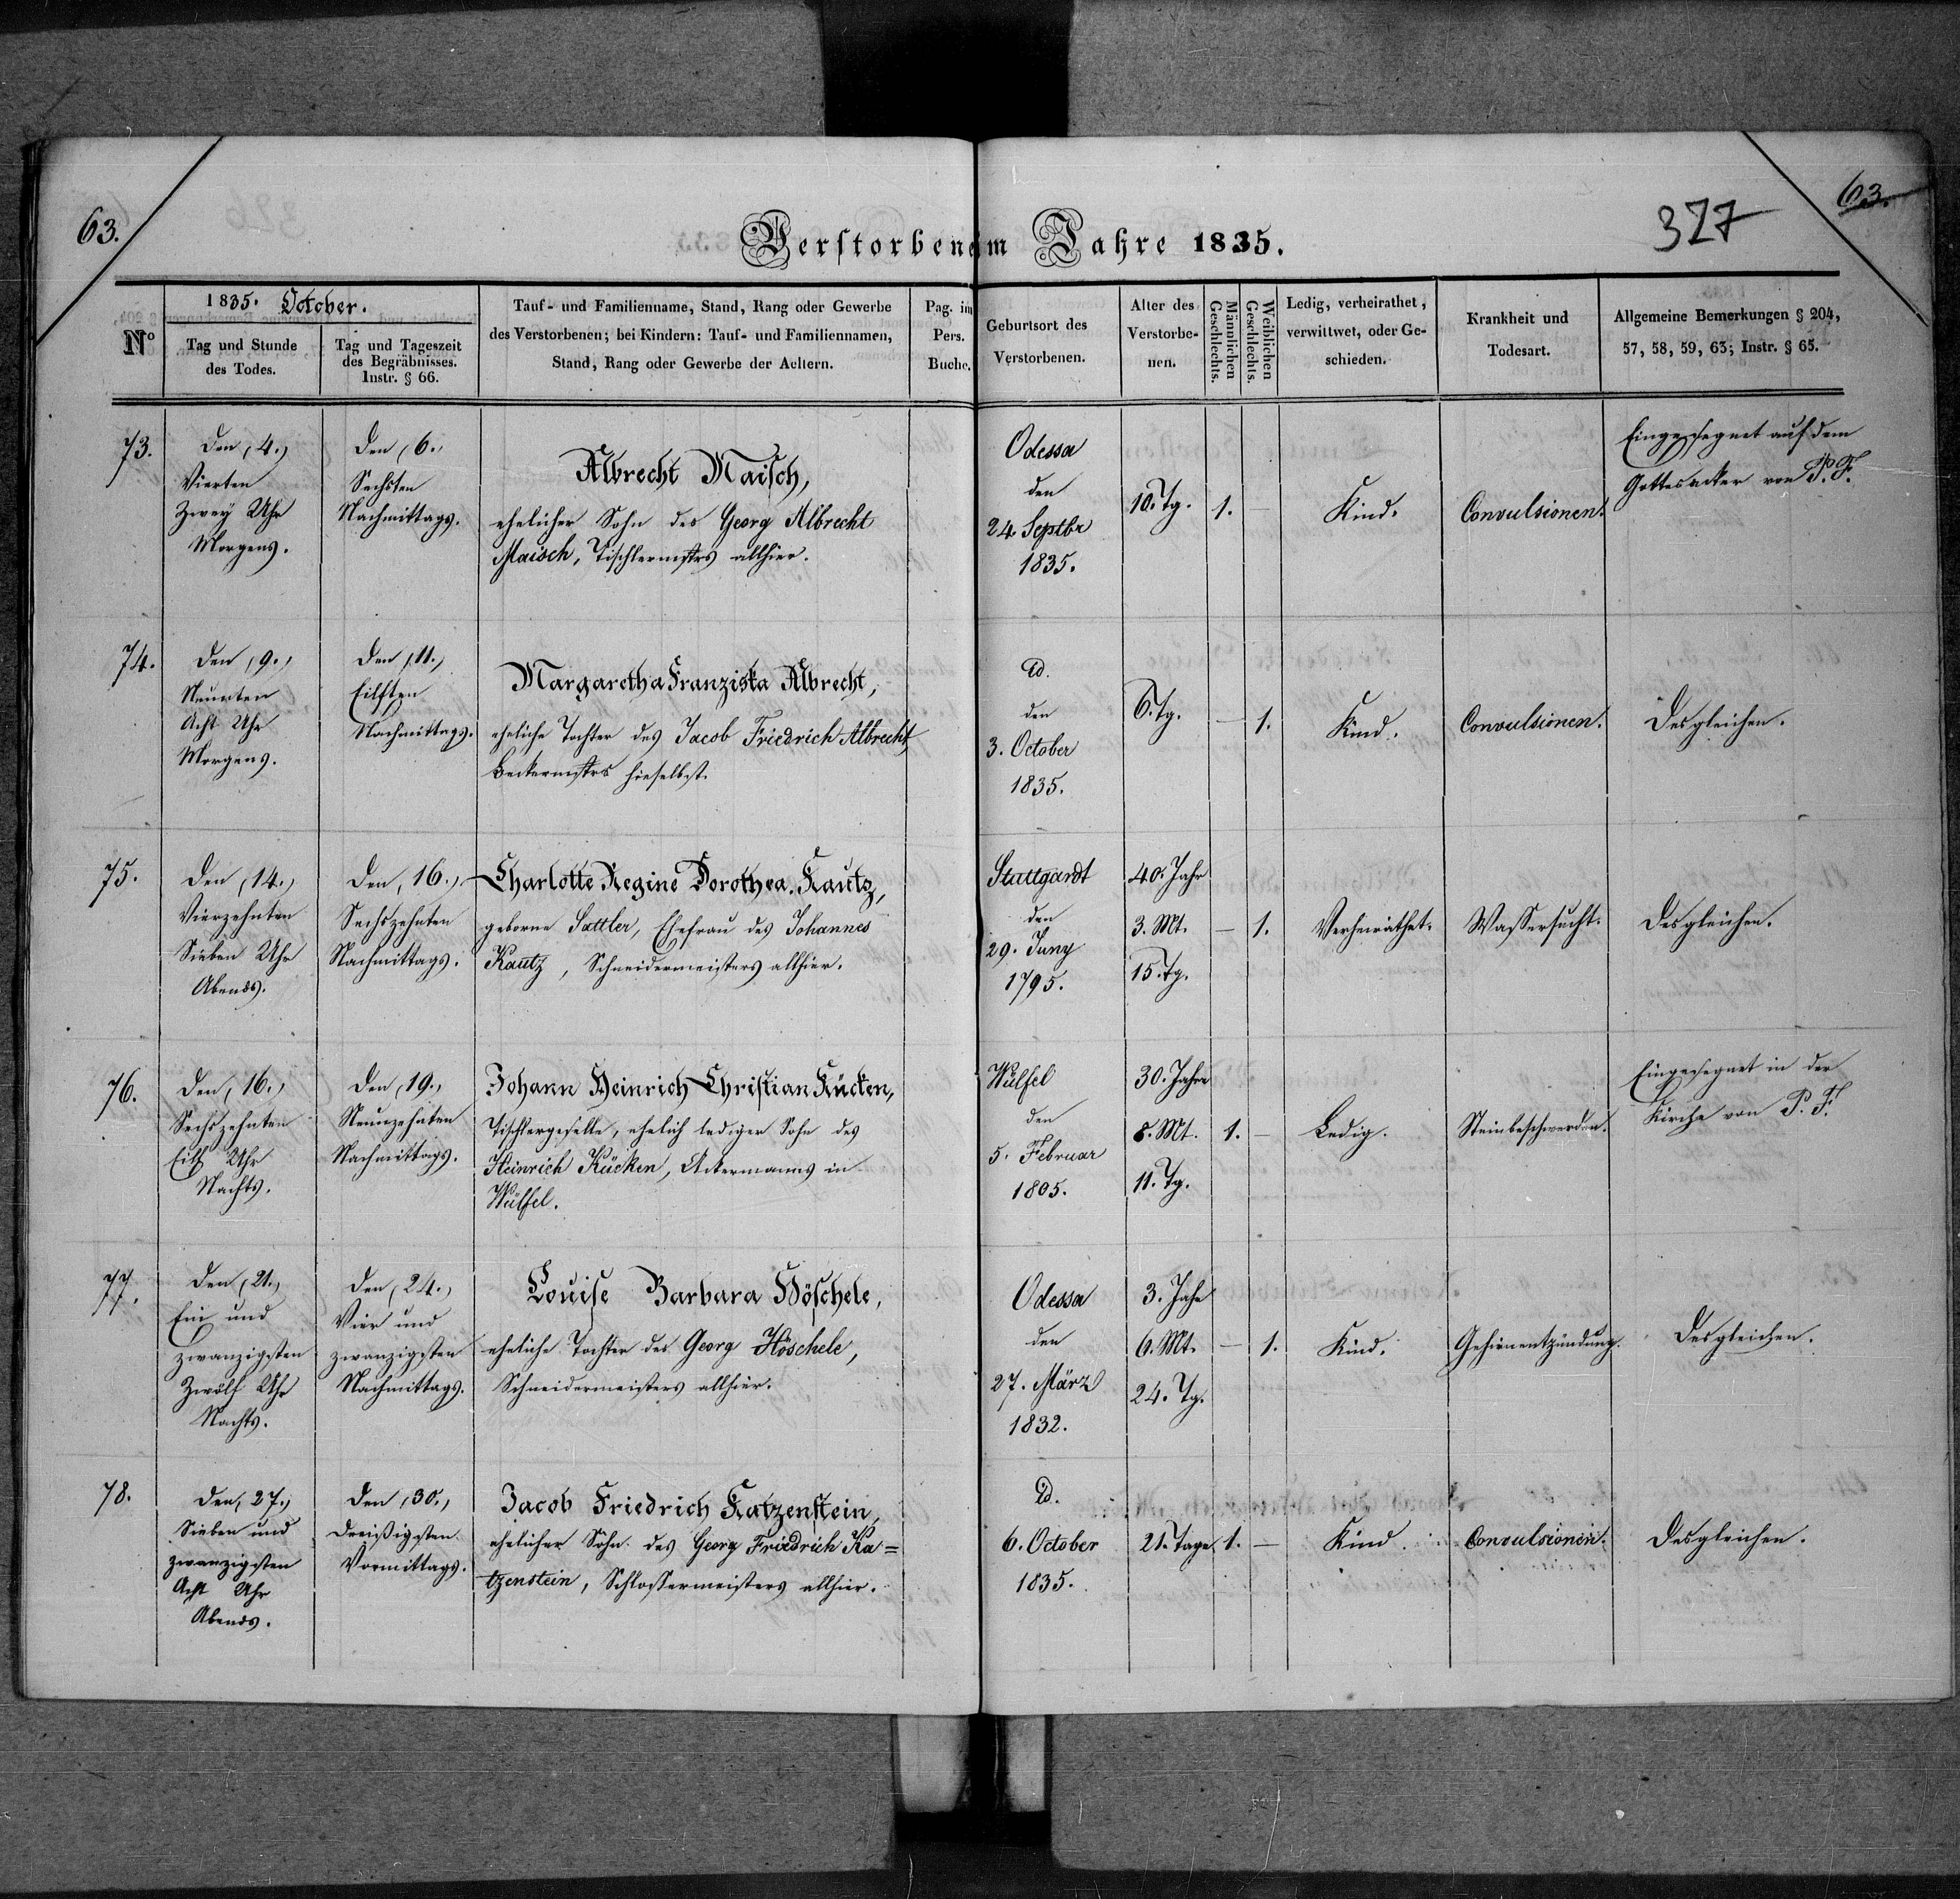 63.
63.
327
Verstorbene im Jahre 1835.
No
1835. October.
Tag und Stunde
des Todes.
Tag und Tageszeit
des Begräbnisses.
Instr. § 66.
Tauf- und Familienname, Stand, Rang oder Gewerbe
des Verstorbenen; bei Kindern: Tauf- und Familiennamen,
Stand, Rang oder Gewerbe der Aeltern.
Pag. im
Pers.
Buche.
Geburtsort des
Verstorbenen.
Alter des
Verstorbe-
nen.
Männlichen
Geschlechts.
Weiblichen
Geschlechts.
Ledig, verheirathet,
verwittwet, oder Ge-
schieden.
Krankheit und
Todesart.
Allgemeine Bemerkungen § 204,
57, 58, 59, 63; Instr. § 65.
73.
Den (4.)
Vierten
Zwey Uhr
Morgens.
Den (6.)
Sechsten
Nachmittags.
Albrecht Maisch,
ehelicher Sohn des Georg Albrecht
Maisch, Tischlermstrs allhier.
Odessa
den
24. Septbr
1835.
10. Tg.
1.
—
Kind.
Convulsionen.
Eingesegnet auf dem
Gottesacker von P. F.
74.
Den (9.)
Neunten
Acht Uhr
Morgens.
Den (11.)
Eilften
Nachmittags.
Margaretha Franziska Albrecht,
eheliche Tochter des Jacob Friedrich Albrecht,
Beckermstrs hieselbst.
id.
den
3. October
1835.
6. Tg.
—
1.
Kind.
Convulsionen.
Desgleichen.
75.
Den (14.)
Vierzehnten
Sieben Uhr
Abends.
Den (16.)
Sechszehnten
Nachmittags.
Charlotte Regine Dorothea Kautz,
geborne Sattler, Ehefrau des Johannes
Kautz, Schneidermeisters allhier.
Stuttgardt
den
29. Juny
1795.
40. Jahr
3. Mt.
15. Tg.
—
1.
Verheirathet.
Wassersucht.
Desgleichen.
76.
Den (16.)
Sechszehnten
Eilf Uhr
Nachts.
Den (19.)
Neunzehnten
Nachmittags.
Johann Heinrich Christian Kücken,
Tischlergeselle, ehelich lediger Sohn des
Heinrich Kücken, Ackermanns in
Wülfel.
Wülfel
den
5. Februar
1805.
30. Jahre
8. Mt.
11. Tg.
1.
—
Ledig.
Steinbeschwerden.
Eingesegnet in der
Kirche von P. F.
77.
Den (21.)
Ein und
zwanzigsten
Zwölf Uhr
Nachts.
Den (24.)
Vier und
zwanzigsten
Nachmittags.
Louise Barbara Höschele,
eheliche Tochter des Georg Höschele,
Schneidermeisters allhier.
Odessa
den
27. März
1832.
3. Jahr
6. Mt.
24. Tg.
—
1.
Kind.
Gehirnentzündung.
Desgleichen.
78.
Den (27.)
Sieben und
zwanzigsten
Acht Uhr
Abends.
Den (30.)
Dreißigsten
Vormittags.
Jacob Friedrich Katzenstein,
ehelicher Sohn des Georg Friedrich Ka=
tzenstein, Schlossermeisters allhier.
id.
6. October
1835.
21. Tage
1.
—
Kind.
Convulsionen.
Desgleichen.